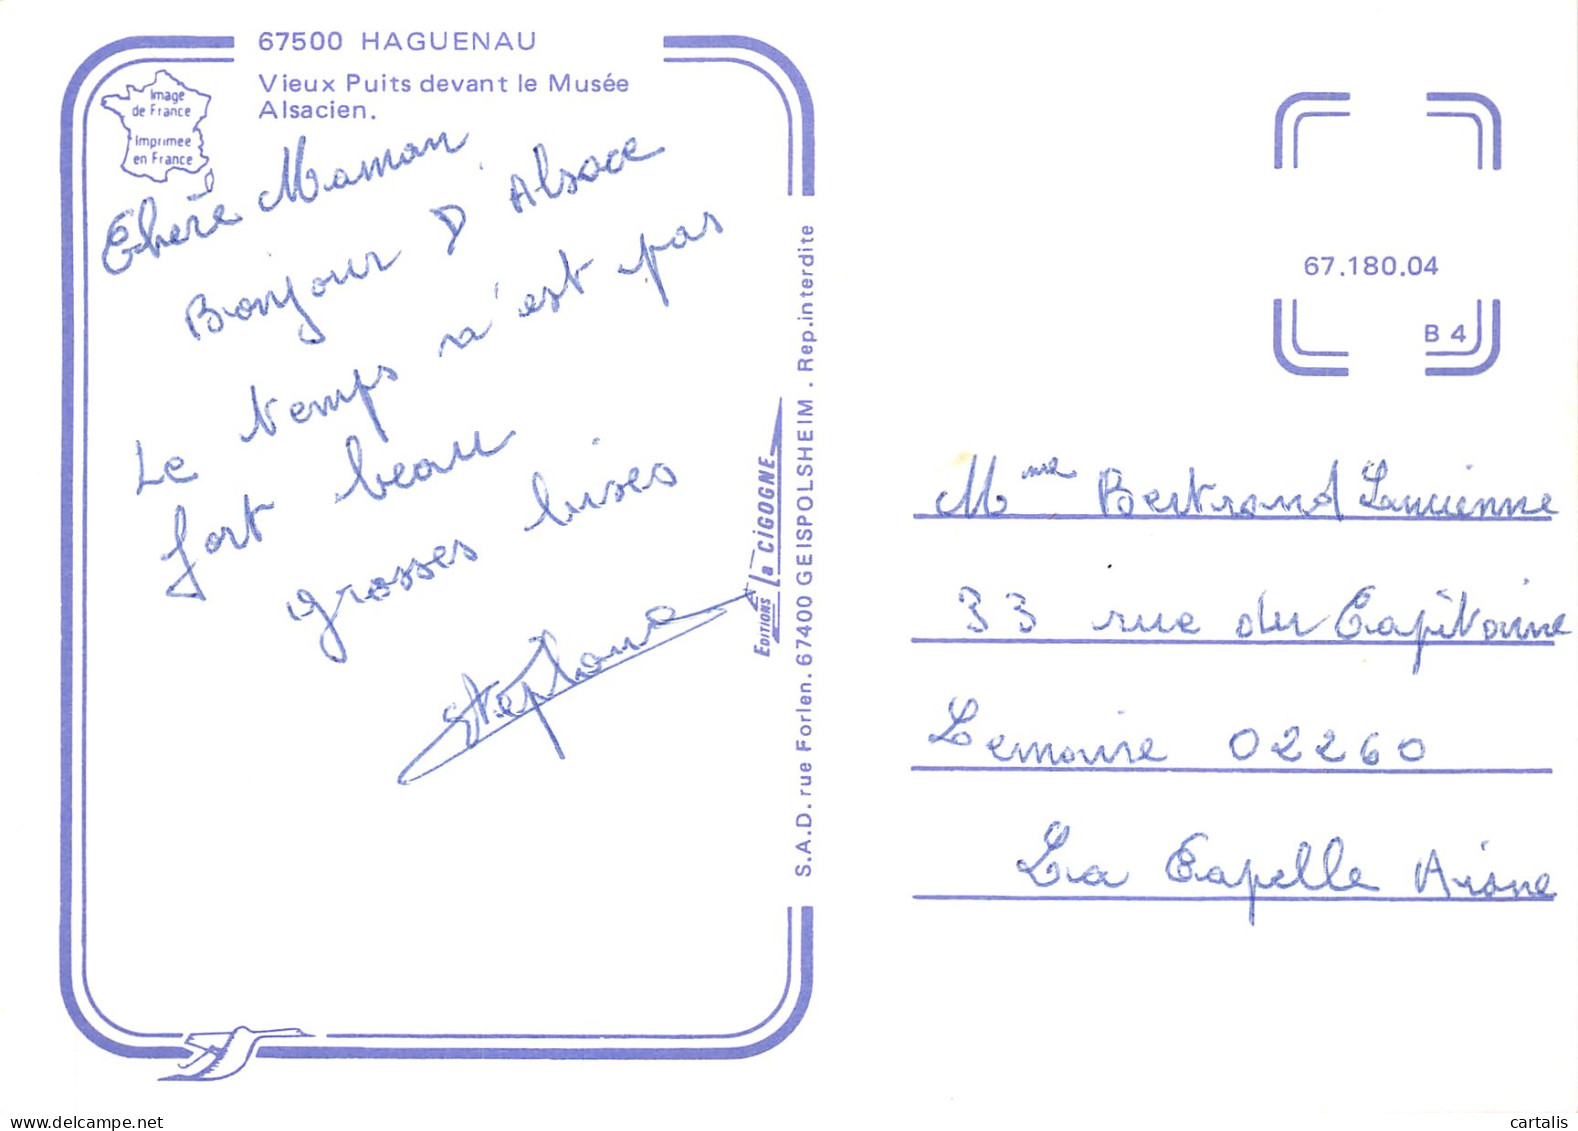 67500 HAGUENAU
Vieux Puits devant le Musée
Alsacien.
Image
de France
Imprimée
en France
Chère Maman
Bonjour D'Alsace
Le temps n'est pas
fort beau
grosses bises
Stéphane
EDITIONS La CIGOGNE
S.A.D. rue Forlen. 67400 GEISPOLSHEIM . Rep.interdite
67.180.04
B 4
Mme Bertrand Lucienne
33 rue du Capitaine
Lemaire 02260
La Capelle Aisne
cartalis